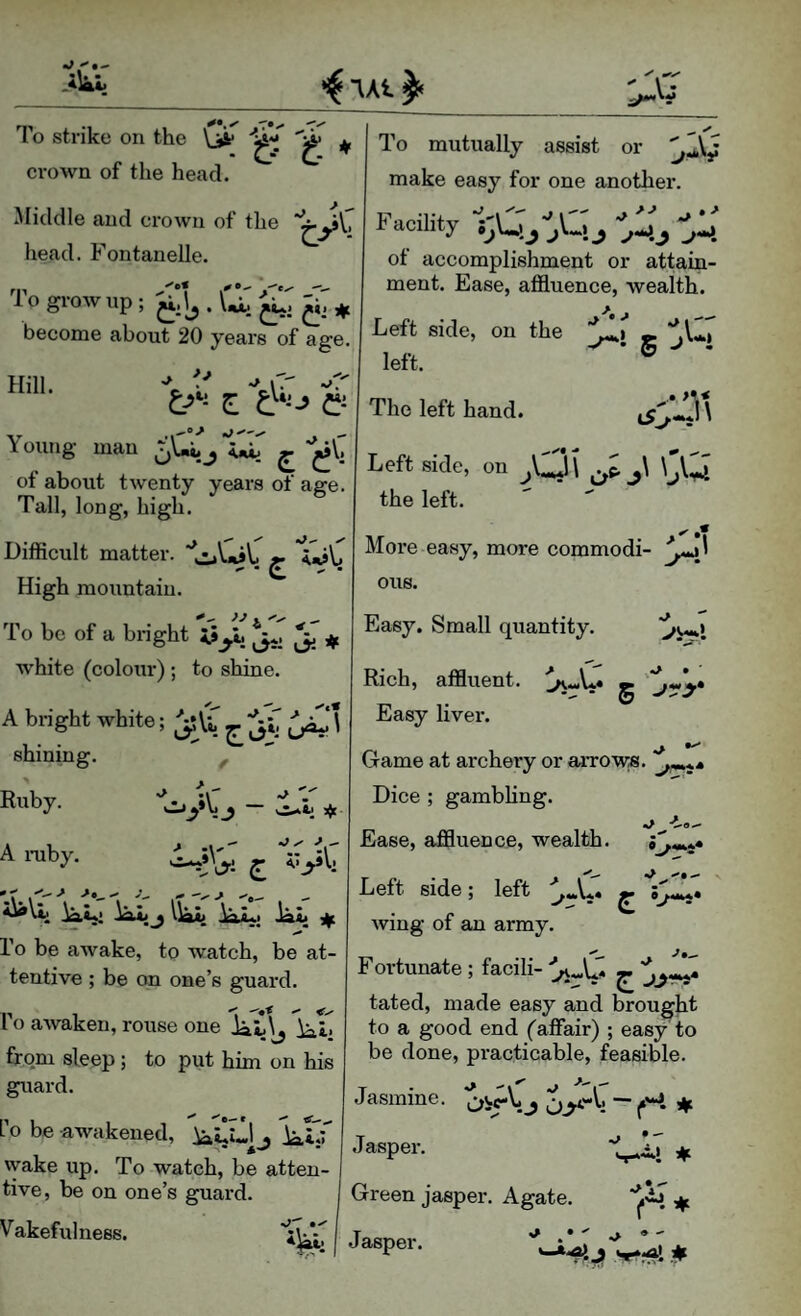 يَقْظَة تَيَاسَر
To mutually assist or تَيَاسَرَ
make easy for one another.
Facility يُسْر ويُسُر ويَسَار ويَسَارَة
of accomplishment or attain-
ment. Ease, affluence, wealth.
Left side, on the يَسَار ج يُسُر
left.
The left hand. اليُسْرَى
Left side, on يَسَارًا أو عن اليَسَار
the left.
More easy, more commodi- أَيْسَر
ous.
Easy. Small quantity. يَسِير
Rich, affluent. مُوسِر ج مَيَاسِير
Easy liver.
Game at archery or arrows. مَيْسِر
Dice ; gambling.
Ease, affluence, wealth. مَيْسَرَة
Left side ; left مَيْسَرَة ج مَيَاسِر
wing of an army.
Fortunate ; facili- مَيْسُور ج مَيَاسِير
tated, made easy and brought
to a good end (affair) ; easy to
be done, practicable, feasible.
Jasmine. ✻ يسم – يَاسَمُون ويَاسَمِين
Jasper. ✻ يَشْب
Green jasper. Agate. ✻ يَشْم
Jasper. ✻ يَصْب ويَصْف
To strike on the ✻ يَفَخَ يَيْفَخ يَفْخًا
crown of the head.
Middle and crown of the يَافُوخ
head. Fontanelle.
To grow up ; ✻ يَفَعَ يَيْفَع يَفْعًا . وأَيْفَعَ
become about 20 years of age.
Hill. يَفَع ويَفَاع ج يُفُوع
Young man يَافِع ج يَفَعَة ويُفْعَان
of about twenty years of age.
Tall, long, high.
Difficult matter. يَافِعَة ج يَافِعَات
High mountain.
To be of a bright ✻ يَقَّ يَيَقُّ يُقُوقَة
white (colour) ; to shine.
A bright white ; أَبْيَض يَقَق ج يَقَائِق
shining.
Ruby. ✻ يقت – ويَاقُوت
A ruby. يَاقُوتَة ج يَوَاقِيت
✻ يَقِظَ يَيْقَظ يَقَظًا ويَقُظَ يَيْقُظ يَقَاظَة
To be awake, to watch, be at-
tentive ; be on one's guard.
To awaken, rouse one يَقَّظَ وأَيْقَظَ
from sleep ; to put him on his
guard.
To be awakened, تَيَقَّظَ واسْتَيْقَظَ
wake up. To watch, be atten-
tive, be on one's guard.
Wakefulness. يَقْظَة